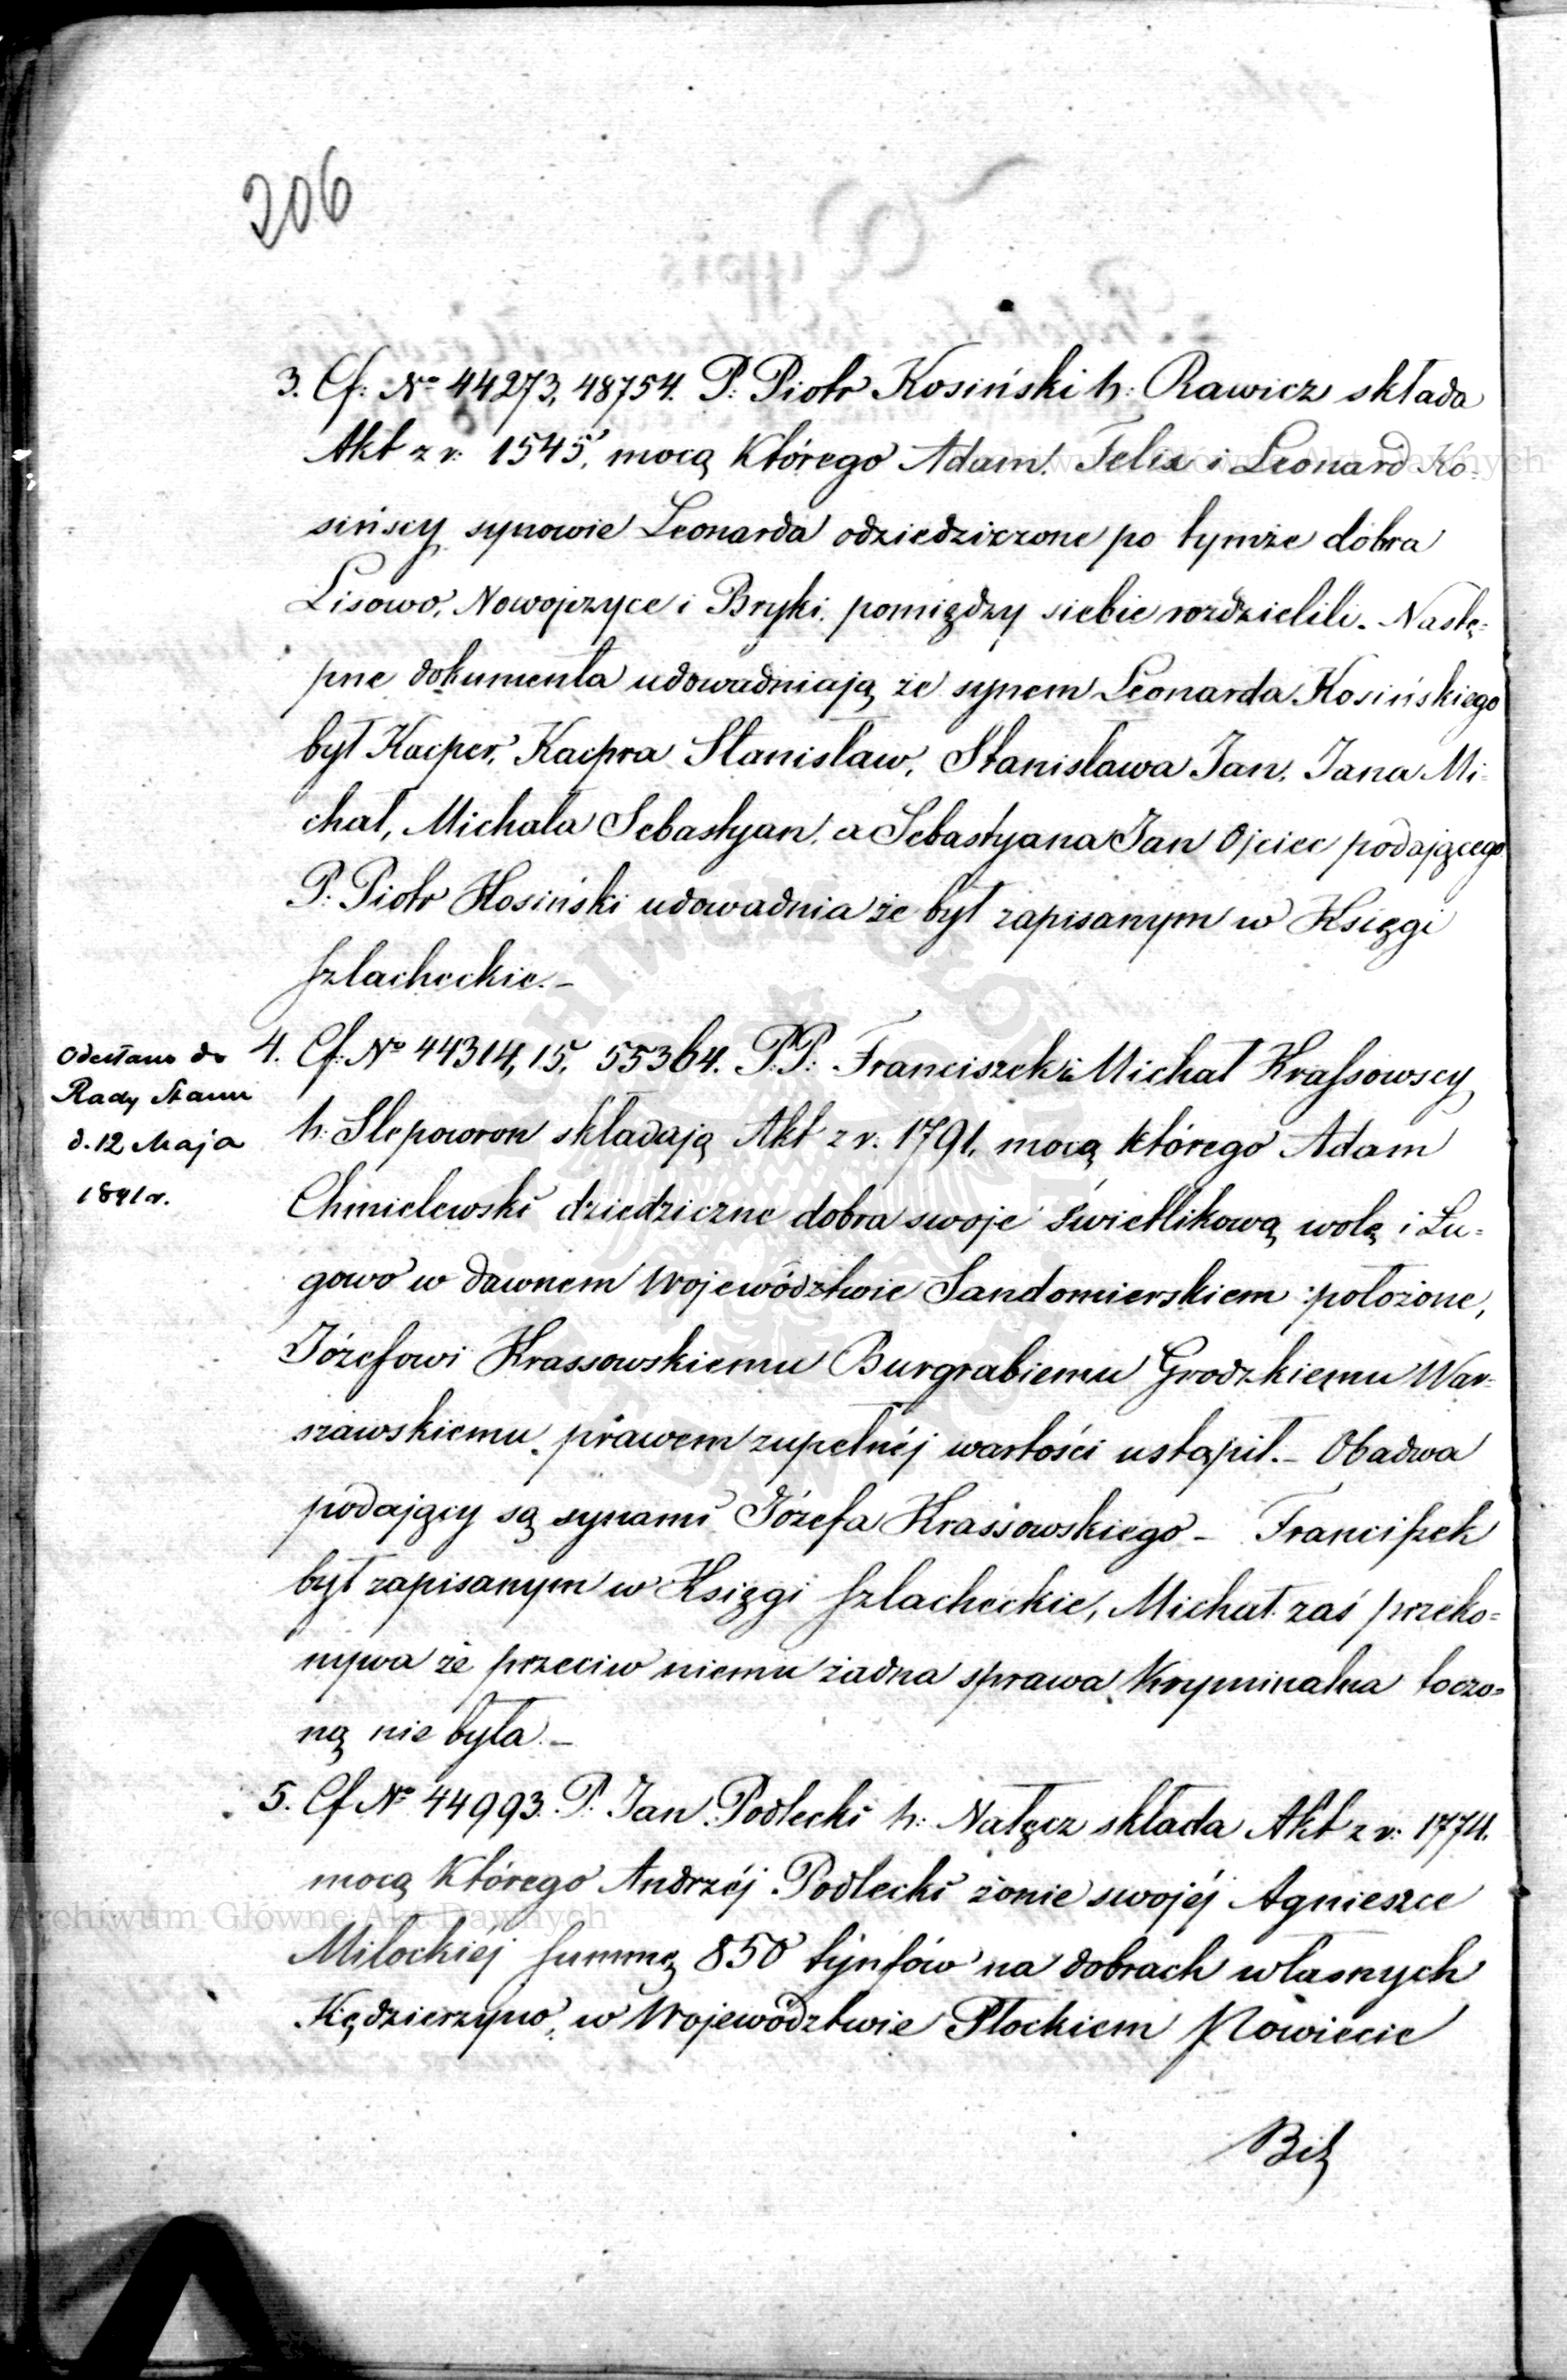 206
3. Cf: No 44273, 48754. P: Piotr Kosiński h: Rawicz składa
Akt z r: 1545, mocą którego Adam, Felix i Leonard Ko=
sińscy synowie Leonarda odziedziczone po tymże dobra
Lisowo, Nowojzyce i Bryki, pomiędzy siebie rozdzielili. Nastę=
pne dokumenta udowadniają że synem Leonarda Kosińskiego
był Kacper, Kacpra Stanisław, Stanisława Jan, Jana Mi=
chał, Michała Sebastyan, a Sebastyana Jan Ojciec podającego
P: Piotr Kosiński udowadnia że był zapisanym w Księgi
szlacheckie.–
Odesłano do
Rady Stanu
d. 12 Maja
1841 r.
4. Cf: No 44314, 15, 55364. P.P: Franciszek i Michał Krassowscy
h: Slepowron składają Akt z r. 1791, mocą którego Adam
Chmielewski dziedziczne dobra swoje świetlikową wolę i Lu=
gowo w dawnem Województwie Sandomierskiem położone,
Józefowi Krassowskiemu Burgrabiemu Grodzkiemu War=
szawskiemu prawem zupełnéj wartości ustąpił.– Obadwa
podający są synami Józefa Krassowskiego – Franciszek
był zapisanym w Księgi szlacheckie, Michał zaś przeko=
nywa że przeciw niemu żadna sprawa kryminalna toczo=
ną nie była.–
5. Cf No 44993. P: Jan Podlecki h: Nałęcz składa Akt z r: 1774.
mocą którego Andrzéj Podlecki żonie swojéj Agnieszce
Miłockiéj summę 850 tynfów na dobrach własnych
Kędzierzyno, w Województwie Płockiem Powiecie
Biel
Archiwum Główne Akt Dawnych
Archiwum Główne Akt Dawnych